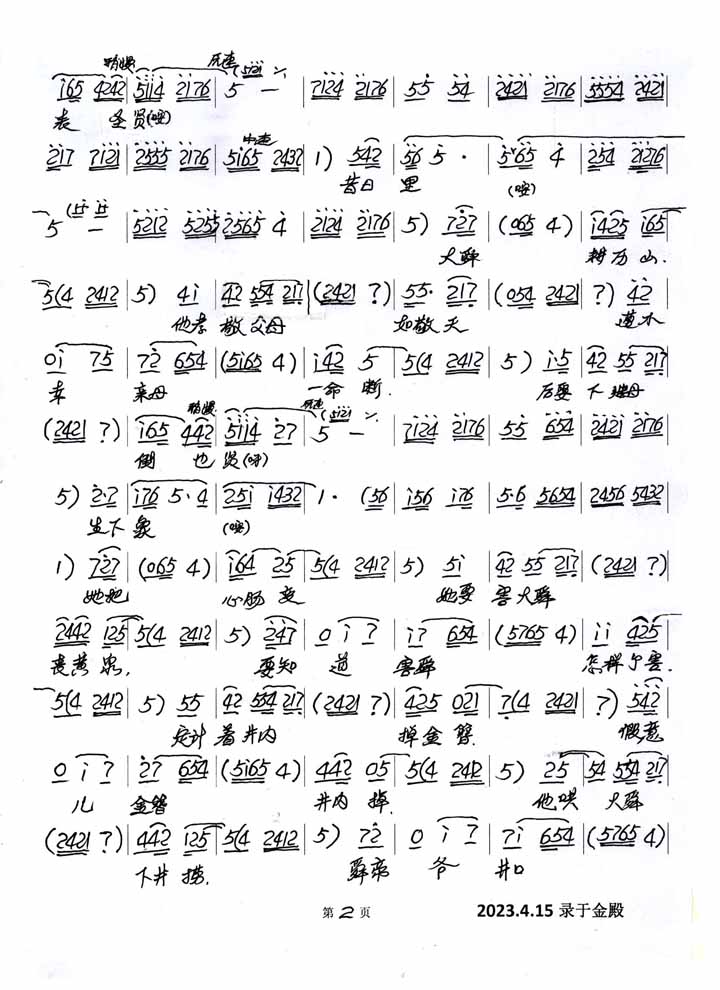 稍慢 原速 (5721
i65 4242 | 5114 2176 | 5 — | 7124 2176 | 55 54 | 2421 2176 | 5554 2421
表 圣贤(哎)
中速
217 7121 | 2555 2176 | 5165 2432 | 1) 542 | 56 5 · | 5·65 4 | 254 21276
昔日 里 (哎)
5 — | 5212 5255 | 2565 4 | 2124 2176 | 5) 727 | (065 4) | i425 i65
大舜 耕历山.
5(4 2412 | 5) 4i | 42 554 217 | (2421 7) | 55· 217 | (054 2421 | 7) 42
他孝 敬父母 如敬天 遭不
0i 75 | 72 654 | (5165 4) | i42 5 | 5(4 2412 | 5) i·5 | 42 55 217
幸 亲母 一命 断. 后娶 下 继母
稍慢 原速 (5121
(2421 7) | i65 442 | 5114 27 | 5 — | 7124 2176 | 55 654 | 2421 2176
倒 也 贤(呀)
5) 2·7 | i76 5·4 | 25i i432 | 1· (56 | i56 i76 | 5·6 5654 | 2456 5432
生下 象 (哎)
1) 727 | (065 4) | i64 25 | 5(4 2412 | 5) 5i | 42 55 217 | (2421 7)
她把 心肠 变 她要 害大舜
2442 125 | 5(4 2412 | 5) 247 | 0 i 7 | i7 654 | (5765 4) | ii 425
丧黄泉. 要知 道 害舜 怎样个害.
5(4 2412 | 5) 55 | 42 554 217 | (2421 7) | 425 021 | 7(4 2421 | 7) 542
定计 着井内 掉金簪 假意
0 i 7 | 27 654 | (5165 4) | 442 05 | 5(4 2412 | 5) 25 | 54 554 217
儿 金簪 井内 掉. 他哄 大舜
(2421 7) | 442 125 | 5(4 2412 | 5) 72 | 0 i 7 | 7i 654 | (5765 4)
下井 捞. 舜帝 爷 井口
第 2 页 2023.4.15 录于金殿